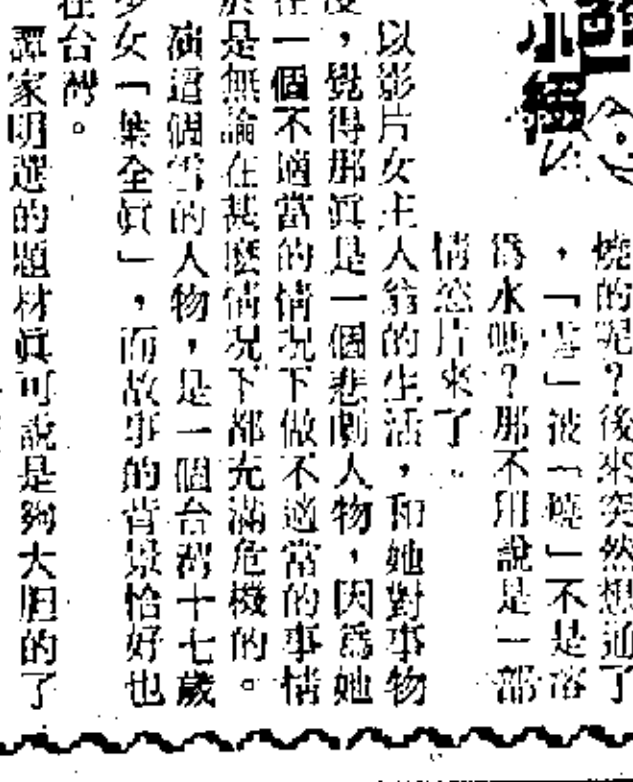 小
燒的呢？後來突然想通了
，「雪」被「燒」不是溶
爲水嗎？那不用說是一部
情慾片來了。
以影片女主人翁的生活，和她對事物
，覺得那眞是一個悲劇人物，因爲她
在一個不適當的情況下做不適當的事情
於是無論在甚麼情況下都充滿危機的。
演這個雪的人物，是一個台灣十七歲
少女「葉全眞」，而故事的背景恰好也
在台灣。
譚家明選的題材眞可說是夠大胆的了